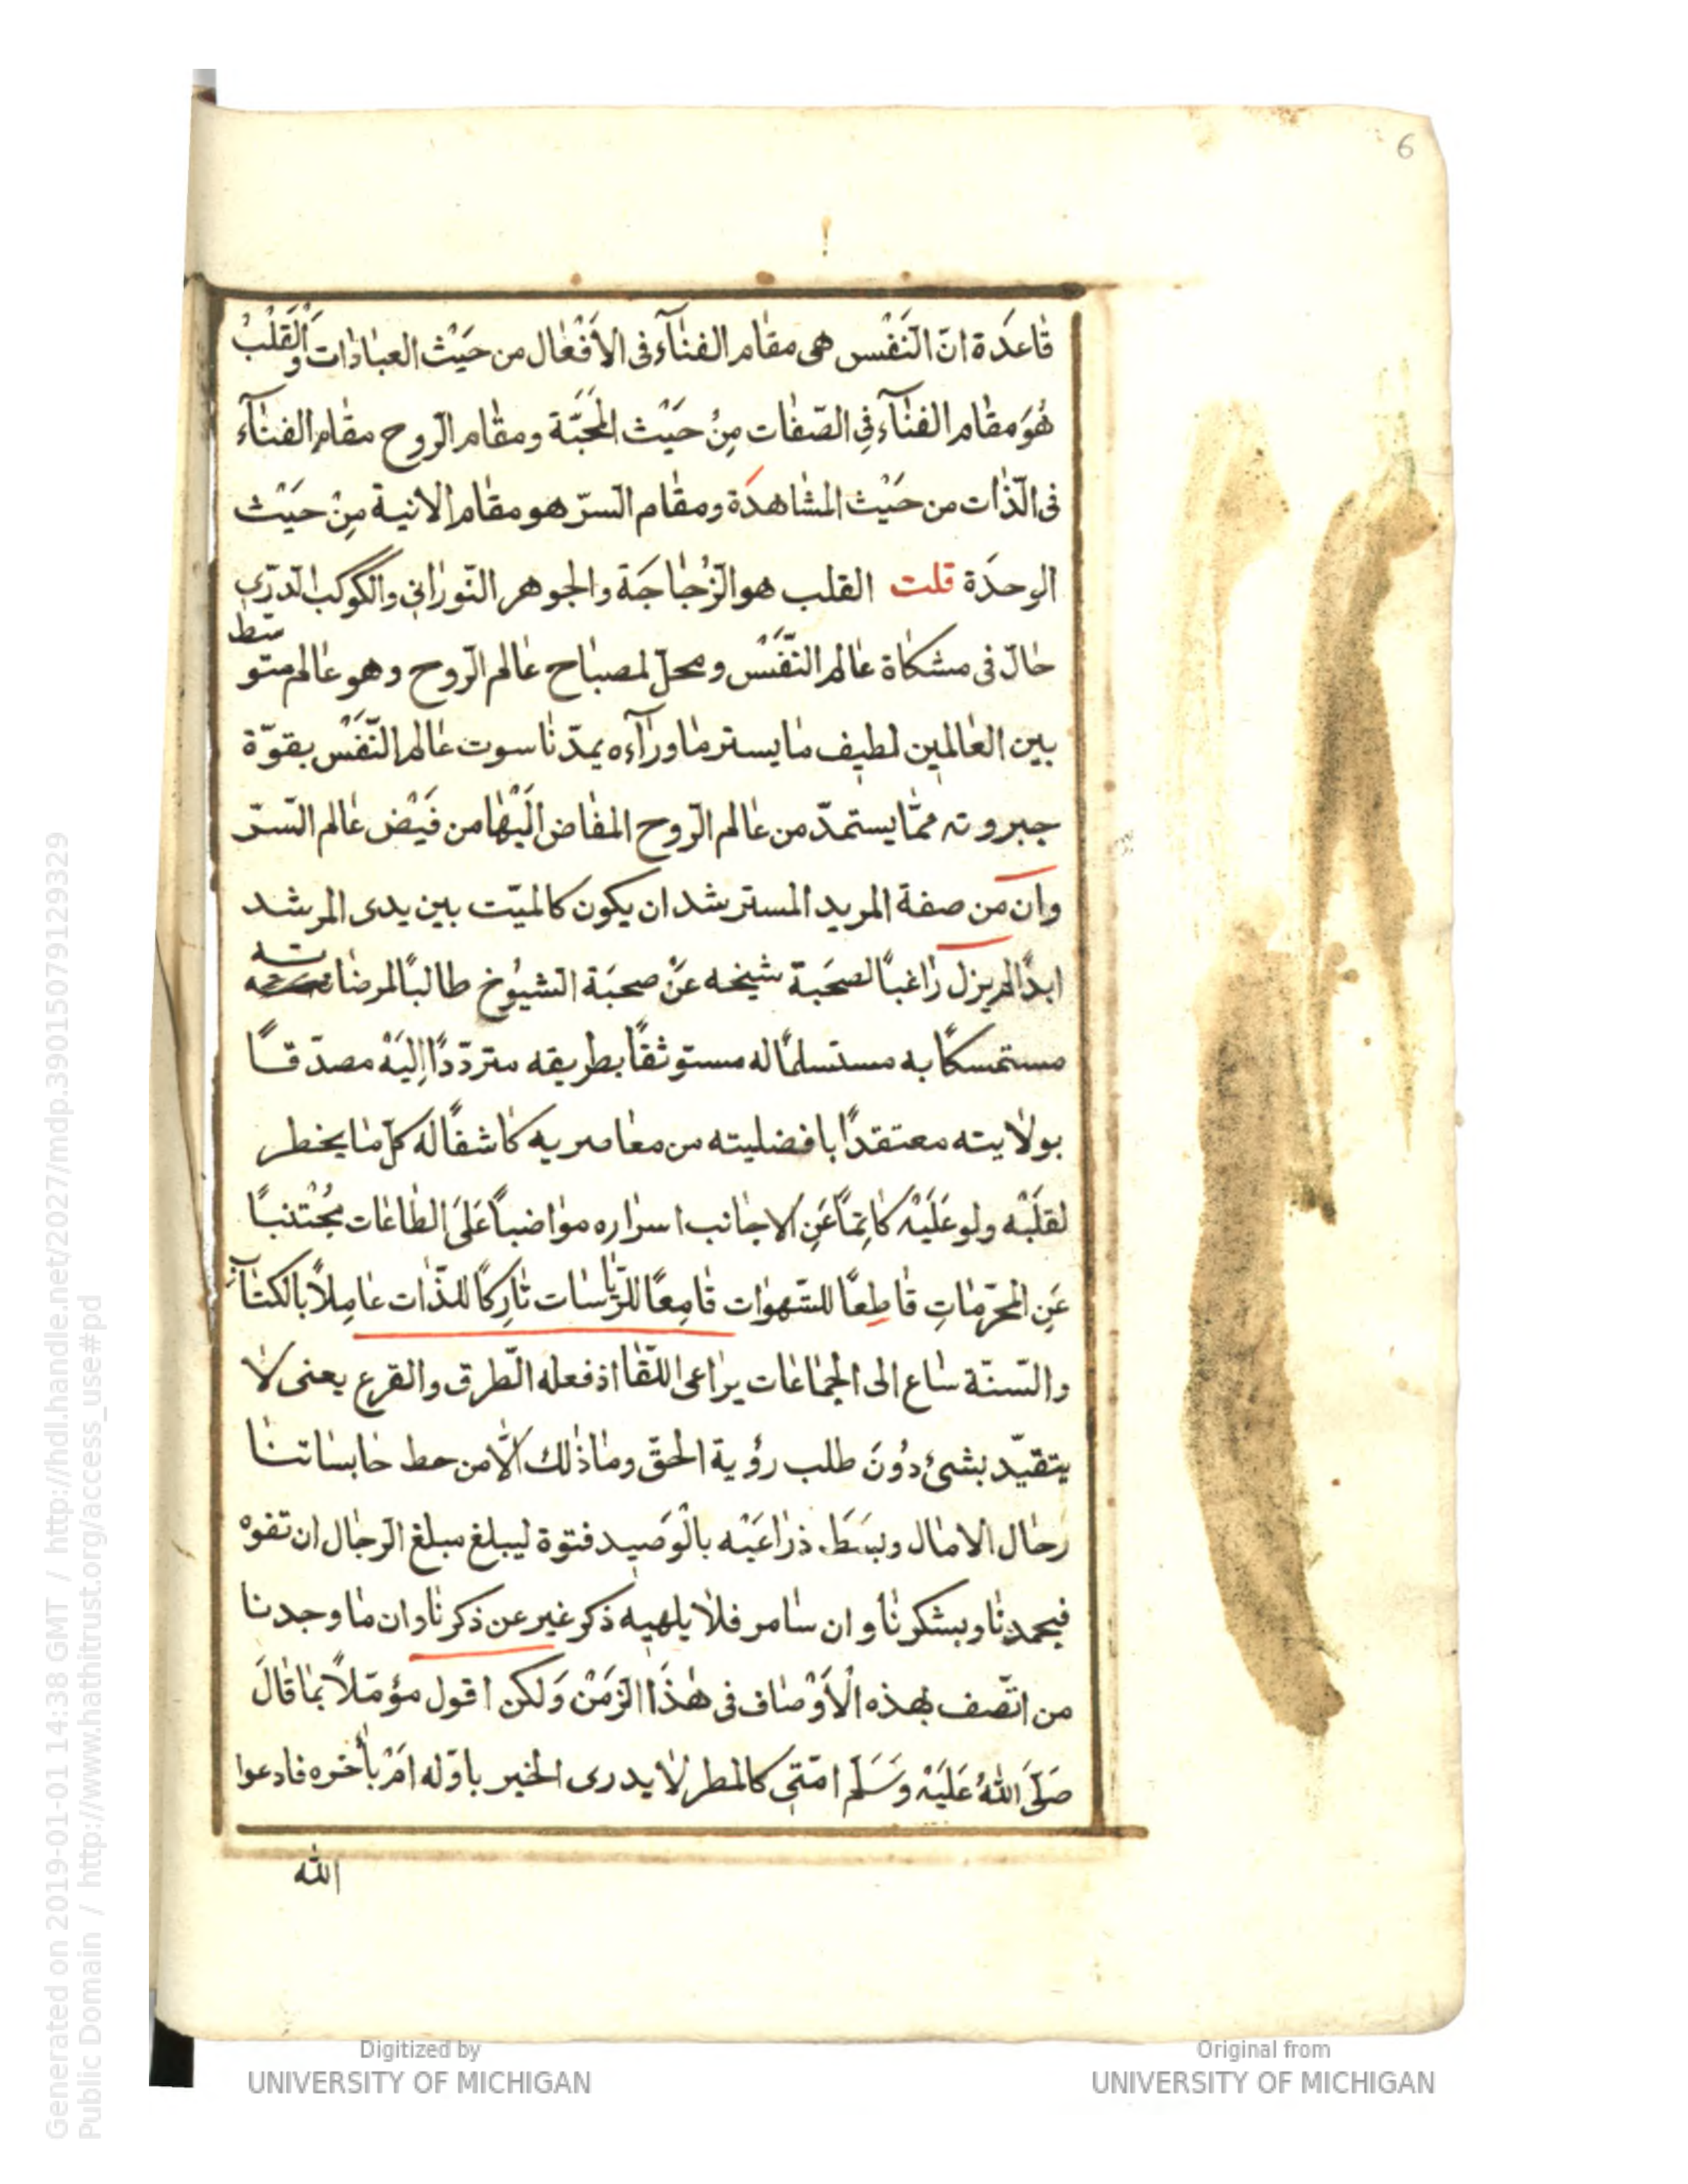 6
قاعدة انّ النّفس هى مقام الفنآء فى الأفعال من حيث العبادات والقلب
هو مقام الفنآء فى الصّفات من حيث المحبّة ومقام الرّوح مقام الفنآء
فى الذّات من حيث المشاهدة ومقام السرّ هو مقام الانية من حيث
الوحدة قلت القلب هو الزّجاجة والجوهر النّورانى والكوكب الدرّى
حالّ فى مشكاة عالم النّفس ومحلّ لمصباح عالم الرّوح وهو عالم متوسّط
بين العالمين لطيف ما يستر ما ورآءه يمدّ ناسوت عالم النّفس بقوّة
جبروته ممّا يستمدّ من عالم الرّوح المفاض اليها من فيض عالم السّرّ
وان من صفة المريد المسترشد ان يكون كالميّت بين يدى المرشد
ابدًا لم يزل راغبًا لصحبة شيخه عن صحبة الشيوخ طالبًا لمرضاته
مستمسكًا به مستسلمًا له مستوثقًا بطريقه متردّدًا إليه مصدّقًا
بولايته معتقدًا بافضليته من معاصريه كاشفًا له كلّ ما يخطر
لقلبه ولو عليه كاتمًا عن الاجانب اسراره مواضبًا على الطاعات مجتنبًا
عن المحرّمات قاطعًا للشّهوات قامعًا للرّياسات تاركًا للذّات عاملاً بالكتاب
والسّنّة ساع الى الجماعات يراعى اللّقا اذ فعله الطّرق والقرع يعنى لا
يتقيّد بشىء دون طلب رؤية الحقّ وما ذلك الّا من حط حابساتنا
رحال الامال وبسط ذراعيه بالوصيد فتوة ليبلغ مبلغ الرّجال ان تفوه
فبحمدنا وبشكرنا وان سامر فلا يلهيه ذكر غير عن ذكرنا وان ما وجدنا
من اتّصف بهذه الأوصاف فى هذا الزّمن ولكن اقول مؤمّلاً بما قال
صلّى الله عليه وسلّم امّتى كالمطر لا يدرى الخير باوّله ام بأخره فادعوا
الله
Generated on 2019-01-01 14:38 GMT / http://hdl.handle.net/2027/mdp.39015079129329
Public Domain / http://www.hathitrust.org/access_use#pd
Digitized by
UNIVERSITY OF MICHIGAN
Original from
UNIVERSITY OF MICHIGAN